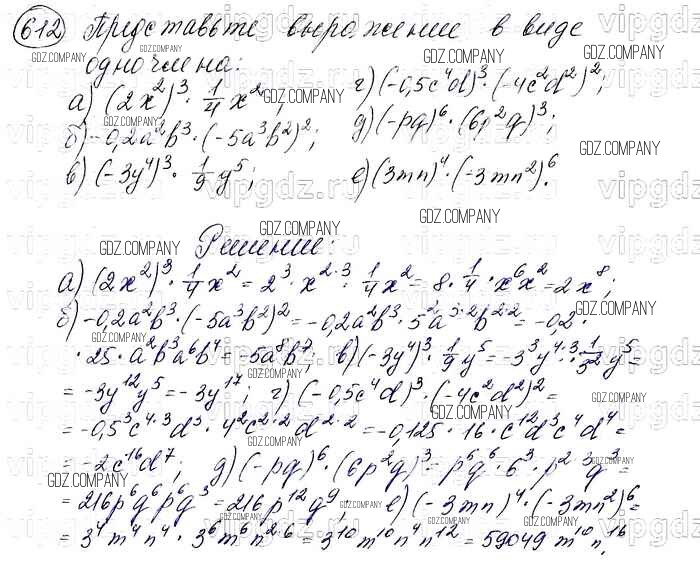 612 Представьте выражение в виде
одночлена:
а) (2x²)³ · 1/4 x²; г) (-0,5c⁴d)³ · (-4c²d²)²;
б) -0,2a²b³ · (-5a³b²)²; д) (-pq)⁶ · (6p²q)³;
в) (-3y⁴)³ · 1/9 y⁵; е) (3mn)⁴ · (-3mn²)⁶.
Решение:
а) (2x²)³ · 1/4 x² = 2³ · x²·³ · 1/4 x² = 8 · 1/4 · x⁶x² = 2x⁸;
б) -0,2a²b³ · (-5a³b²)² = -0,2a²b³ · 5²a³·²b²·² = -0,2 ·
· 25 · a²b³a⁶b⁴ = -5a⁸b⁷; в) (-3y⁴)³ · 1/9 y⁵ = -3³y⁴·³ · 1/3² y⁵ =
= -3y¹²y⁵ = -3y¹⁷; г) (-0,5c⁴d)³ · (-4c²d²)² =
= -0,5³c⁴·³d³ · 4²c²·²d²·² = -0,125 · 16 · c¹²d³c⁴d⁴ =
= -2c¹⁶d⁷; д) (-pq)⁶ · (6p²q)³ = p⁶q⁶ · 6³ · p²·³q³ =
= 216p⁶q⁶p⁶q³ = 216p¹²q⁹; е) (-3mn)⁴ · (-3mn²)⁶ =
= 3⁴m⁴n⁴ · 3⁶m⁶n²·⁶ = 3¹⁰m¹⁰n⁴n¹² = 59049 m¹⁰n¹⁶.
GDZ.COMPANY
vipgdz.ru